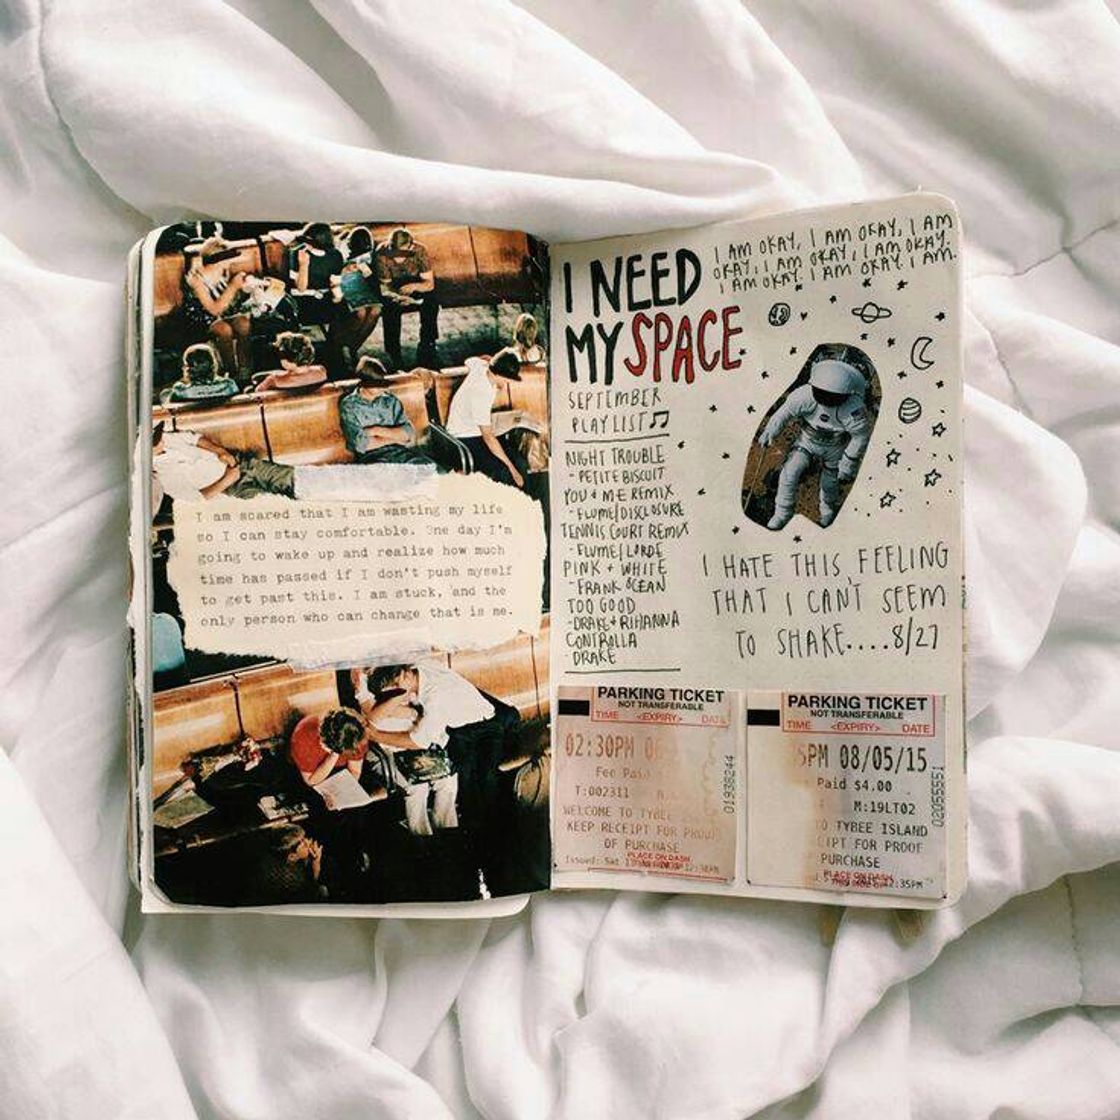 I am scared that I am wasting my life
so I can stay comfortable. One day I'm
going to wake up and realize how much
time has passed if I don't push myself
to get past this. I am stuck, and the
only person who can change that is me.
I NEED
MY SPACE
I AM OKAY, I AM OKAY, I AM
OKAY, I AM OKAY, I AM OKAY.
I AM OKAY. I AM OKAY. I AM.
SEPTEMBER
PLAYLIST♫
NIGHT TROUBLE
- PETITE BISCUIT
YOU + ME REMIX
- FLUME/DISCLOSURE
TENNIS COURT REMIX
- FLUME/LORDE
PINK + WHITE
- FRANK OCEAN
TOO GOOD
- DRAKE + RIHANNA
CONTROLLA
- DRAKE
I HATE THIS FEELING
THAT I CAN'T SEEM
TO SHAKE....8/27
PARKING TICKET
NOT TRANSFERABLE
TIME <EXPIRY> DATE
02:30PM 06
Fee Paid
T:002311
WELCOME TO TYBEE
KEEP RECEIPT FOR PROOF
OF PURCHASE
PLACE ON DASH
Issued: Sat
01938244
PARKING TICKET
NOT TRANSFERABLE
TIME <EXPIRY> DATE
5PM 08/05/15
Paid $4.00
M:19LT02
TO TYBEE ISLAND
CIPT FOR PROOF
PURCHASE
PLACE ON DASH
12:35PM
02055551